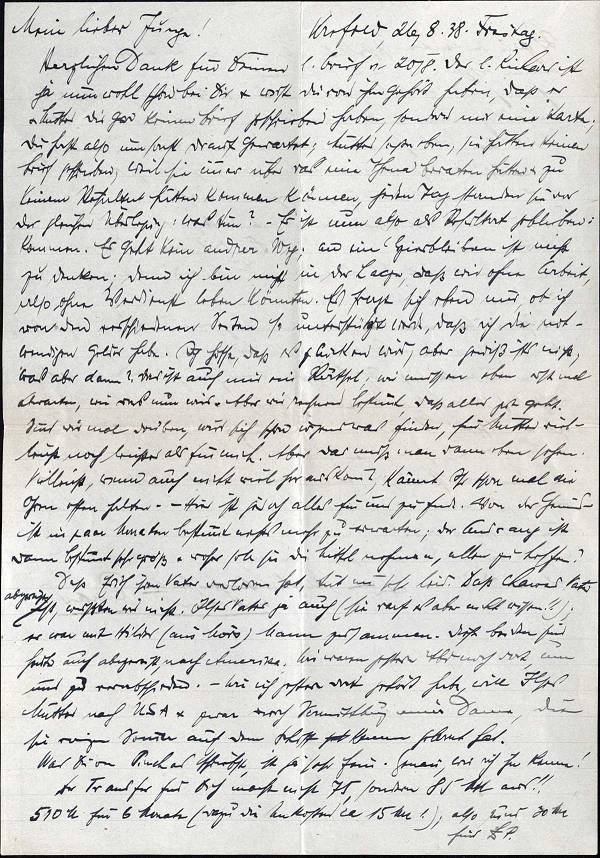 Mein lieber Junge! Krefeld, 26/8.38. Freitag.
Herzlichen Dank für Deinen l. Brief v. 20/8. Der l. ist
ja nun wohl schon bei Dir & wirst Du von ihm gehört haben, daß er
& Mutter Dir gar keinen Brief geschrieben haben, sondern nur eine Karte.
Du hast also umsonst darauf gewartet; Mutter, sie hätten keinen
Brief geschrieben, weil sie immer über das eine Thema beraten hätten & zu
keinem Resultat hätten kommen können, jeden Tag standen sie vor
der gleichen Überlegung: was tun? - Es ist nun also als Resultat geblieben:
kommen. Es geht kein andrer Weg. an ein Hierbleiben ist nicht
zu denken; denn ich bin nicht in der Lage, daß wir ohne Arbeit,
also ohne Verdienst leben könnten. Es fragt sich eben nur, ob ich
von den verschiedenen Seiten so unterstützt werde, daß ich die not-
wendigen Gelder habe. Ich hoffe, daß es glücken wird, aber gewiß ist's nicht,
was aber dann? das ist auch mir ein Rätsel, wir müssen eben erst mal
abwarten, wie das nun wird. Aber wir rechnen bestimmt daß alles gut geht.
Sind wir mal drüben, wird sich schon irgend was finden, für Mutter viel-
leicht noch leichter als für mich. Aber das muß man dann eben sehen.
Vielleicht, wenn auch nicht viel, könnt Ihr schon mal die
Ohren offen halten. - Hier ist jedoch alles für uns zu Ende. Von der
ist in paar Monaten bestimmt nichts mehr zu erwarten; der Andrang ist
dann bestimmt sehr groß & woher soll sie die Mittel nehmen, allen zu helfen?
Daß sein Vater verloren hat, tut mir sehr leid. Daß Vater
abgereist
ist, wußten wir nicht. Ilses Vater ja auch (Sie darf es aber nicht wissen!!);
er war mit Hildes (aus Moers) Mann zusammen. Die beiden sind
heute auch abgereist nach Amerika. Wir waren gestern noch dort um
uns zu verabschieden. - Wie ich gestern dort gehört habe, will Ilses
Mutter nach USA & zwar durch Vermittlung einer Dame, die
sie vorigen Sommer auf dem Schiff kennen gelernt hat.
Was Du von schreibst, ist ja sehr fein. Genau wie ich ihn kenne!
Der Transfer für Dich macht nicht 75, sondern 85 Mk aus!!
510 M für 6 Monate (dazu die Unkosten ca 15 Mk!); also rund 90 Mk
für